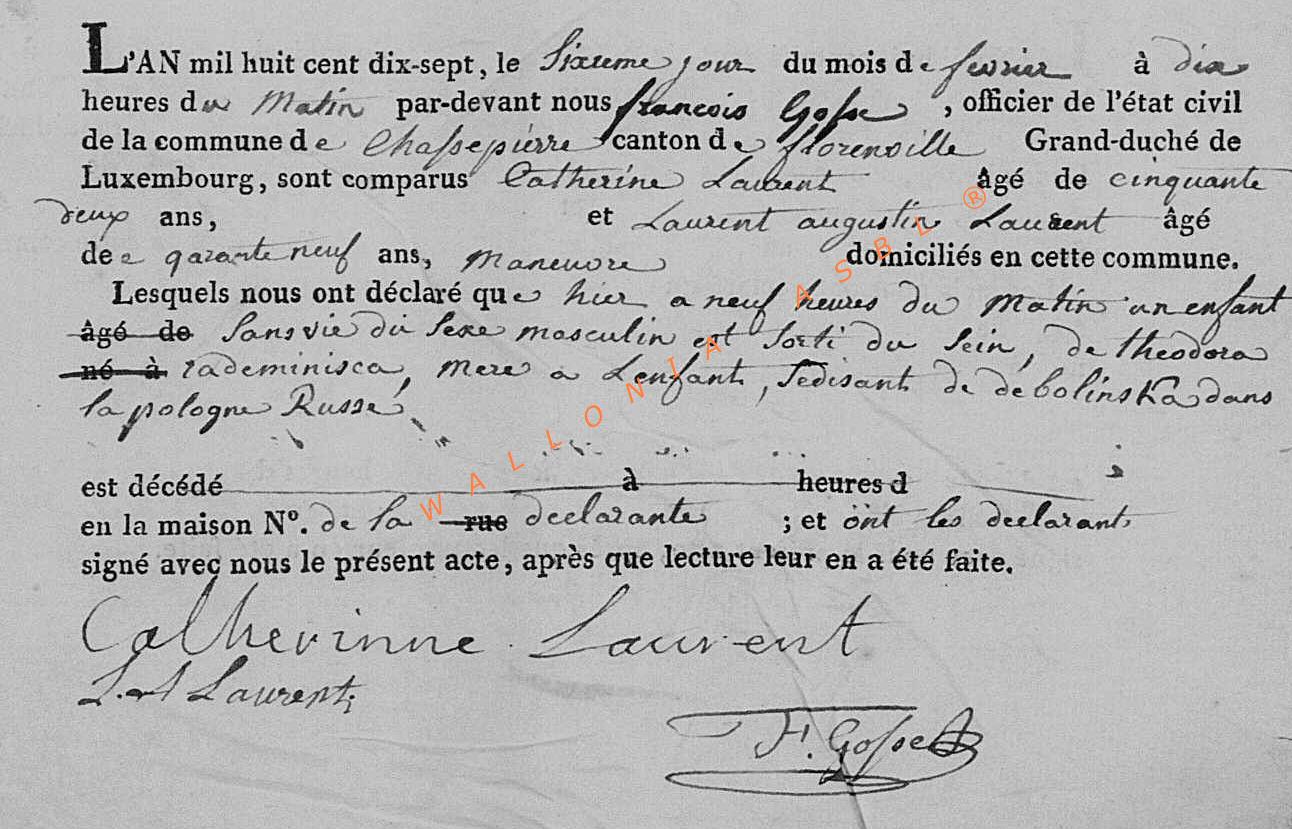 L'AN mil huit cent dix-sept, le Sixieme jour du mois de fevrier à dix
heures du Matin par-devant nous francois Gosse, officier de l'état civil
de la commune de Chassepierre canton de florenville Grand-duché de
Luxembourg, sont comparus Catherine Laurent âgé de cinquante
deux ans, et Laurent augustin Laurent âgé
de qarante neuf ans, maneuvre domiciliés en cette commune.
Lesquels nous ont déclaré que hier a neuf heures du Matin un enfant
âgé de Sans vie du Sexe masculin est Sorti du Sein, de théodora
né à rademinisca, mere a Lenfant, Sedisant de débolinska dans
la pologne Russe
est décédé à heures d
en la maison N°. de la rue declarante ; et ont les declarant
signé avec nous le présent acte, après que lecture leur en a été faite.
Catherinne Laurent
L. A Laurent
F. Gosse
WALLONIA ASBL ®